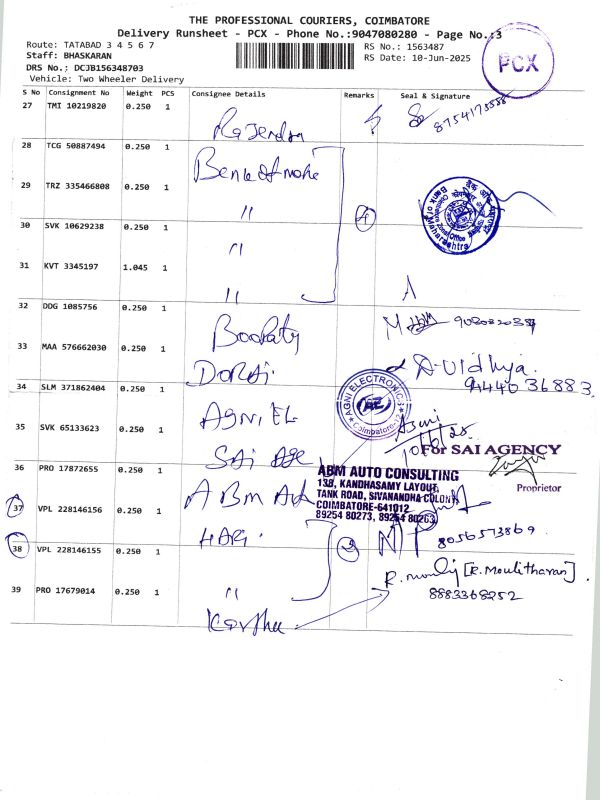 THE PROFESSIONAL COURIERS, COIMBATORE
Delivery Runsheet - PCX - Phone No.:9047080280 - Page No.:3
Route: TATABAD 3 4 5 6 7
RS No.: 1563487
Staff: BHASKARAN
RS Date: 10-Jun-2025
DRS No.; DCJB156348703
Vehicle: Two Wheeler Delivery
PCX
S No Consignment No Weight PCS Consignee Details Remarks Seal & Signature
27 TMI 10219820 0.250 1
Rajendra
28 TCG 50887494 0.250 1
29 TRZ 335466808 0.250 1
"
4
Bank of Maharashtra
30 SVK 10629238 0.250 1
"
31 KVT 3345197 1.045 1
"
32 DDG 1085756 0.250 1
33 MAA 576662030 0.250 1
DORAI
D. Vidhya.
9444036883
34 SLM 371862404 0.250 1
AGNI EL
AGNI ELECTRONICS
Coimbatore
35 SVK 65133623 0.250 1
Agni
10/6/25
SAI AGE
For SAI AGENCY
Proprietor
36 PRO 17872655 0.250 1
ABM Aut
ABM AUTO CONSULTING
138, KANDHASAMY LAYOUT,
TANK ROAD, SIVANANDHA COLONY
COIMBATORE-641012
89254 80273, 89254 80263
37 VPL 228146156 0.250 1
HARI
8056573869
38 VPL 228146155 0.250 1
R. Mouly [R. Moulitharan]
8883368252
39 PRO 17679014 0.250 1
"